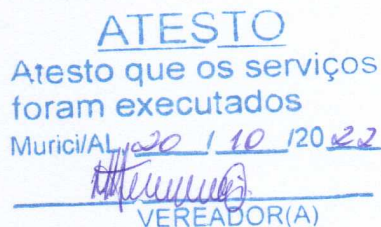 ATESTO
Atesto que os serviços
foram executados
Murici/AL, 20 / 10 /20 22
VEREADOR(A)